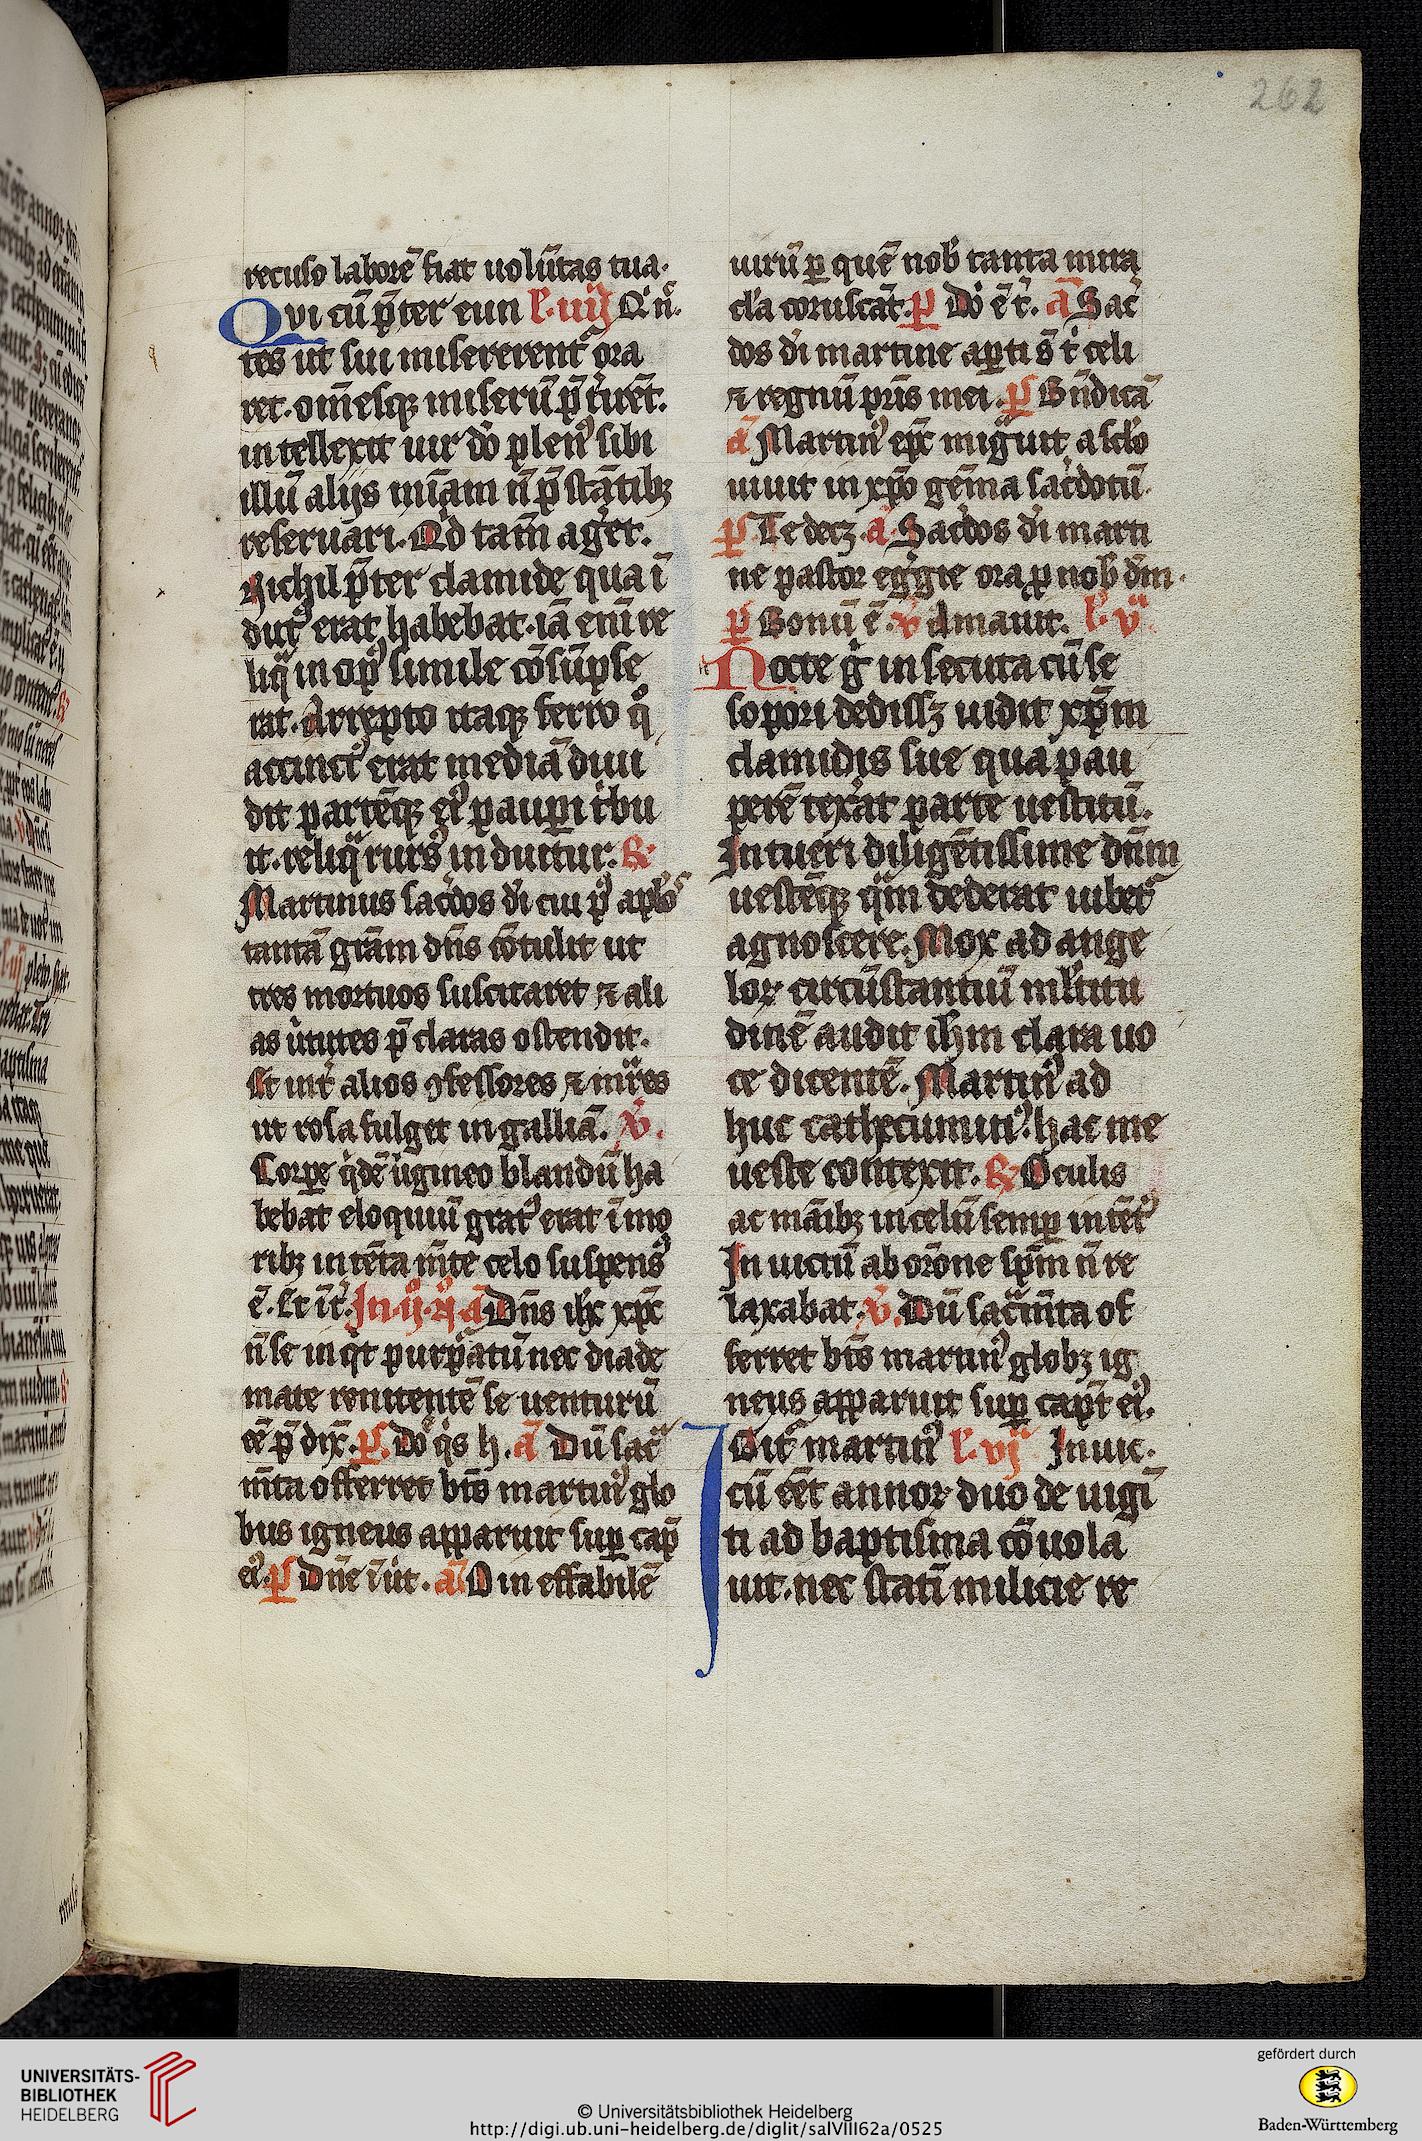 262
recuso laborē fiat uolūtas tua·
Qvi cū p̄ter eun l·iiij Q̇ n̄·
tes ut sui misererent᷑ ora
ret·om̄esq; miserū p̄t̾irēt.
intellexit uir dō plen᷒ sibi
illū alijs mīam n̄ p̄stātib;
reseruari·Qd tam̄ aḡet.
Nichil p̄ter clamide qua ī
dut᷒ erat habebat·iā enī re
liq̄ in op᷒ simile cōsūpse
rat·Arrepto itaq; ferro q̊
accinct᷒ erat mediā diui
dit partēq; ei᷒ paupi t̾bu
it·reliq̄ rurs᷒ induitur·R᷒
Martinus sac̾dos di cui p᷒ aplos
tantā grām dn̄s cōtulit ut
tres mortuos suscitaret ⁊ ali
as u̾tutes p̄claras ostendit·
Et int̾ alios ꝯfessores ⁊ mr̄es
ut rosa fulget in galliā. V̾·
Corpe q̇dē u̾gineo blandū ha
bebat eloquiū grat᷒ erat ī mo
rib; intēta m̄te celo suspens᷒
ē·Et īt̾·In·ij·n̊·ā Dn̄s ihc xpc
n̄ se inq̇t purp̄atū nec diade
mate renitentē se uenturū
ēē p̄dix̄·p̄s·Dō q̇s h·ā Dū sac̾
m̄ta offerret bt̄s martin᷒ glo
bus igneus apparuit sup cap̄
ei᷒·p̄s Dn̄e ī u̾t·ā O ineffabilē
uirū p quē nob̾ tanta mira
cl̾a coruscāt·p̄s Dō ē t̾·ā Sac̾
dos di martine aperti st̄ t̾ celi
⁊ regnū pr̄is mei·p̄s Bn̄dicā
ā Martin᷒ epc migūit a sclo
uiuit in xpo gēma sac̾dotū·
p̄s Te decz·ā Sac̾dos di marti
ne pastor eḡgie ora p nob̾ dm̄·
p̄s Bonū ē·V̾ Amauit· l·v᷑
Nocte g̊ insecuta cū se
sopori dediss; uidit xp̄m
clamidis sue qua pau
perē tex̾at parte uestitū·
Intueri diligētissime dn̄m
uestēq; q̄m dederat iubet᷑
agnoscere·Mox ad ange
loꝝ circūstantiū ml̾titu
dinē audit ihm̄ clara uo
ce dicentē·Martin᷒ ad
huc cathecumin᷒·hac me
ueste contexit·R᷒ Oculis
ac mānib; in celū semp intēt᷒
Inuictū ab orōne sp̄m n̄ re
laxabat·V̾·Dū sac̾m̄ta of
ferret bt̄s martin᷒ glob; ig
neus apparuit sup capt̄ ei᷒·
Dix̄ martin᷒ l·vj᷑ Inuic·
Icū ēēt annoꝝ duo de uigī
ti ad baptisma cōuola
uit·nec statī milicie re
UNIVERSITÄTS-
BIBLIOTHEK
HEIDELBERG
© Universitätsbibliothek Heidelberg
http://digi.ub.uni-heidelberg.de/diglit/salVIII62a/0525
gefördert durch
Baden-Württemberg